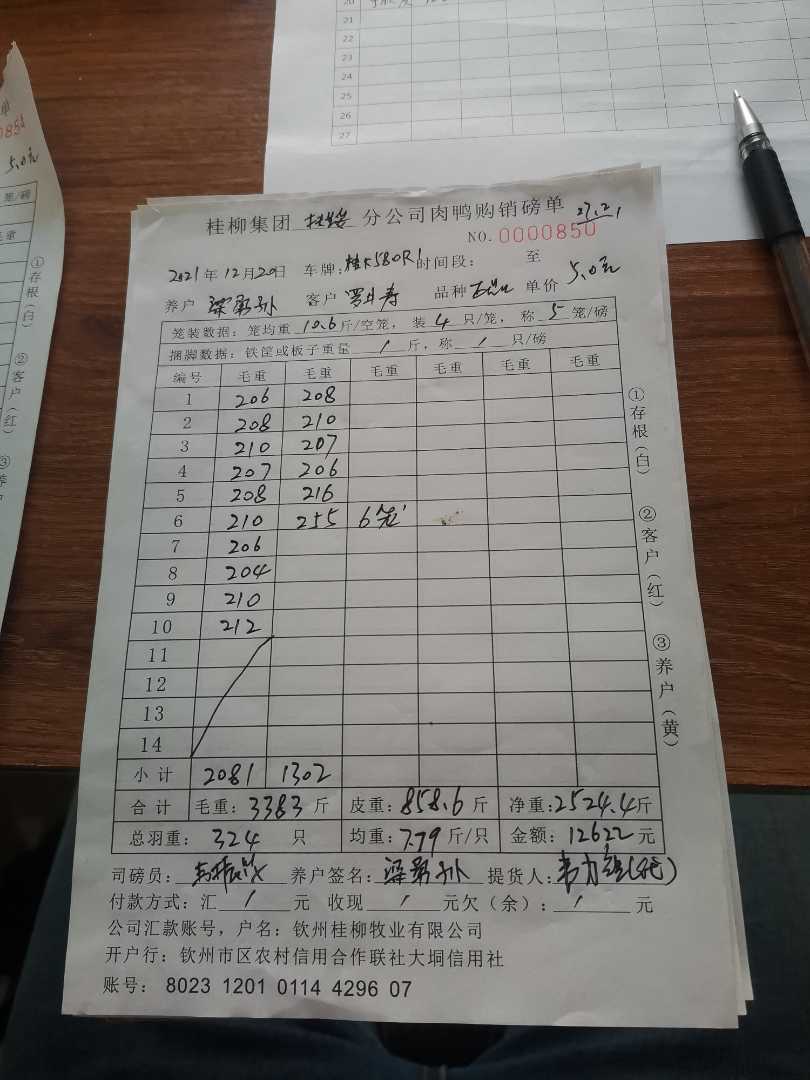 20
21
22
23
24
25
26
27
单
0854
5.0元
笼/磅
毛重
①存根(白)
②客户(红)
③养户
桂柳集团 分公司肉鸭购销磅单 27.2.1
NO. 0000850
2021年12月20日 车牌: 桂K580R1 时间段: 至
养户 客户 品种 单价 5.0元
笼装数据: 笼均重 10.6 斤/空笼, 装 4 只/笼, 称 5 笼/磅
捆脚数据: 铁筐或板子重量 / 斤, 称 / 只/磅
编号 毛重 毛重 毛重 毛重 毛重 毛重
1 206 208
2 208 210
3 210 207
4 207 206
5 208 216
6 210 255 6笼
7 206
8 204
9 210
10 212
11
12
13
14
小计 2081 1302
合计 毛重: 3383 斤 皮重: 858.6 斤 净重: 2524.4 斤
总羽重: 324 只 均重: 7.79 斤/只 金额: 12622 元
司磅员: 养户签名: 提货人:
付款方式: 汇 / 元 收现 / 元欠(余): / 元
公司汇款账号, 户名: 钦州桂柳牧业有限公司
开户行: 钦州市区农村信用合作联社大垌信用社
账号: 8023 1201 0114 4296 07
①存根(白)
②客户(红)
③养户(黄)